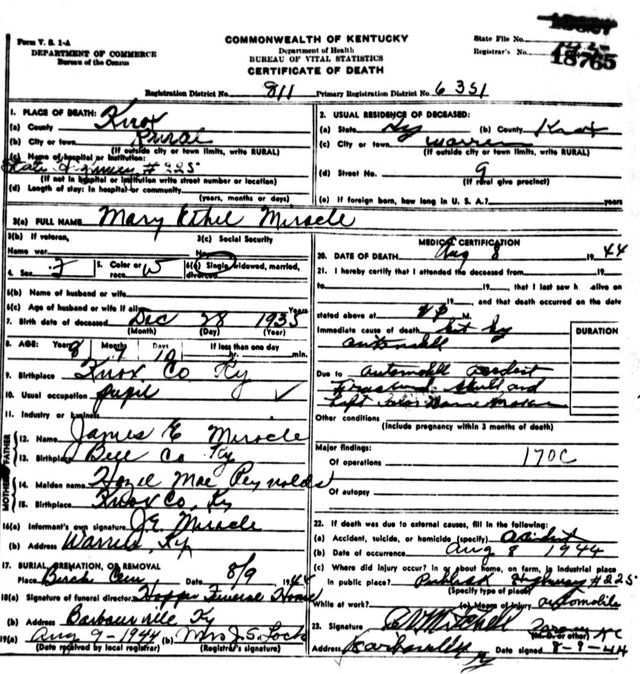 Form V. S. 1-A
DEPARTMENT OF COMMERCE
Bureau of the Census
COMMONWEALTH OF KENTUCKY
Department of Health
BUREAU OF VITAL STATISTICS
CERTIFICATE OF DEATH
State File No.
Registrar's No. 18765
Registration District No. 811 Primary Registration District No. 6351
1. PLACE OF DEATH: Knox
(a) County
(b) City or town Rural
(If outside city or town limits, write RURAL)
(c) Name of hospital or institution:
#225
(If not in hospital or institution write street number or location)
(d) Length of stay: In hospital or community
(years, months or days)
2. USUAL RESIDENCE OF DECEASED:
(a) State Ky (b) County Knox
(c) City or town Warren
(If outside city or town limits, write RURAL)
(d) Street No. 9
(If rural give precinct)
(e) If foreign born, how long in U. S. A.? years
3(a) FULL NAME Mary Ethel Miracle
3(b) If veteran, 3(c) Social Security
Name war No.
4. Sex F 5. Color or race W 6(a) Single, widowed, married, divorced
6(b) Name of husband or wife
6(c) Age of husband or wife if alive Years
7. Birth date of deceased Dec 28 1935
(Month) (Day) (Year)
8. AGE: Years 8 Months 7 Days 10 If less than one day
hr. min.
9. Birthplace Knox Co Ky
10. Usual occupation Pupil
11. Industry or business
FATHER
12. Name James E Miracle
13. Birthplace Bell Co Ky
MOTHER
14. Maiden name Hazel Mae Reynolds
15. Birthplace Knox Co. Ky
16(a) Informant's own signature J.E. Miracle
(b) Address Warren, Ky
17. BURIAL, CREMATION, OR REMOVAL
Place Birch Cem Date 8/9 1944
18(a) Signature of funeral director Hopper Funeral Home
(b) Address Barbourville Ky
19(a) Aug 9-1944 (b) Mrs J. S. Lock
(Date received by local registrar) (Registrar's signature)
MEDICAL CERTIFICATION
20. DATE OF DEATH Aug 8 1944
21. I hereby certify that I attended the deceased from 19
to 19, that I last saw h alive on
19, and that death occurred on the date
stated above at P M.
Immediate cause of death hit by
automobile
DURATION
Due to automobile accident
skull and
Left
Other conditions
(Include pregnancy within 3 months of death)
Major findings:
Of operations 170C
Of autopsy
22. If death was due to external causes, fill in the following:
(a) Accident, suicide, or homicide (specify) accident
(b) Date of occurrence Aug 8 1944
(c) Where did injury occur? in or about home, on farm, in industrial place
in public place? Publick Highway #225
(Specify type of place)
While at work? (e) Means of injury automobile
23. Signature B Mitchell
(M.D. or other)
Address Barbourville Ky Date signed 8-9-44